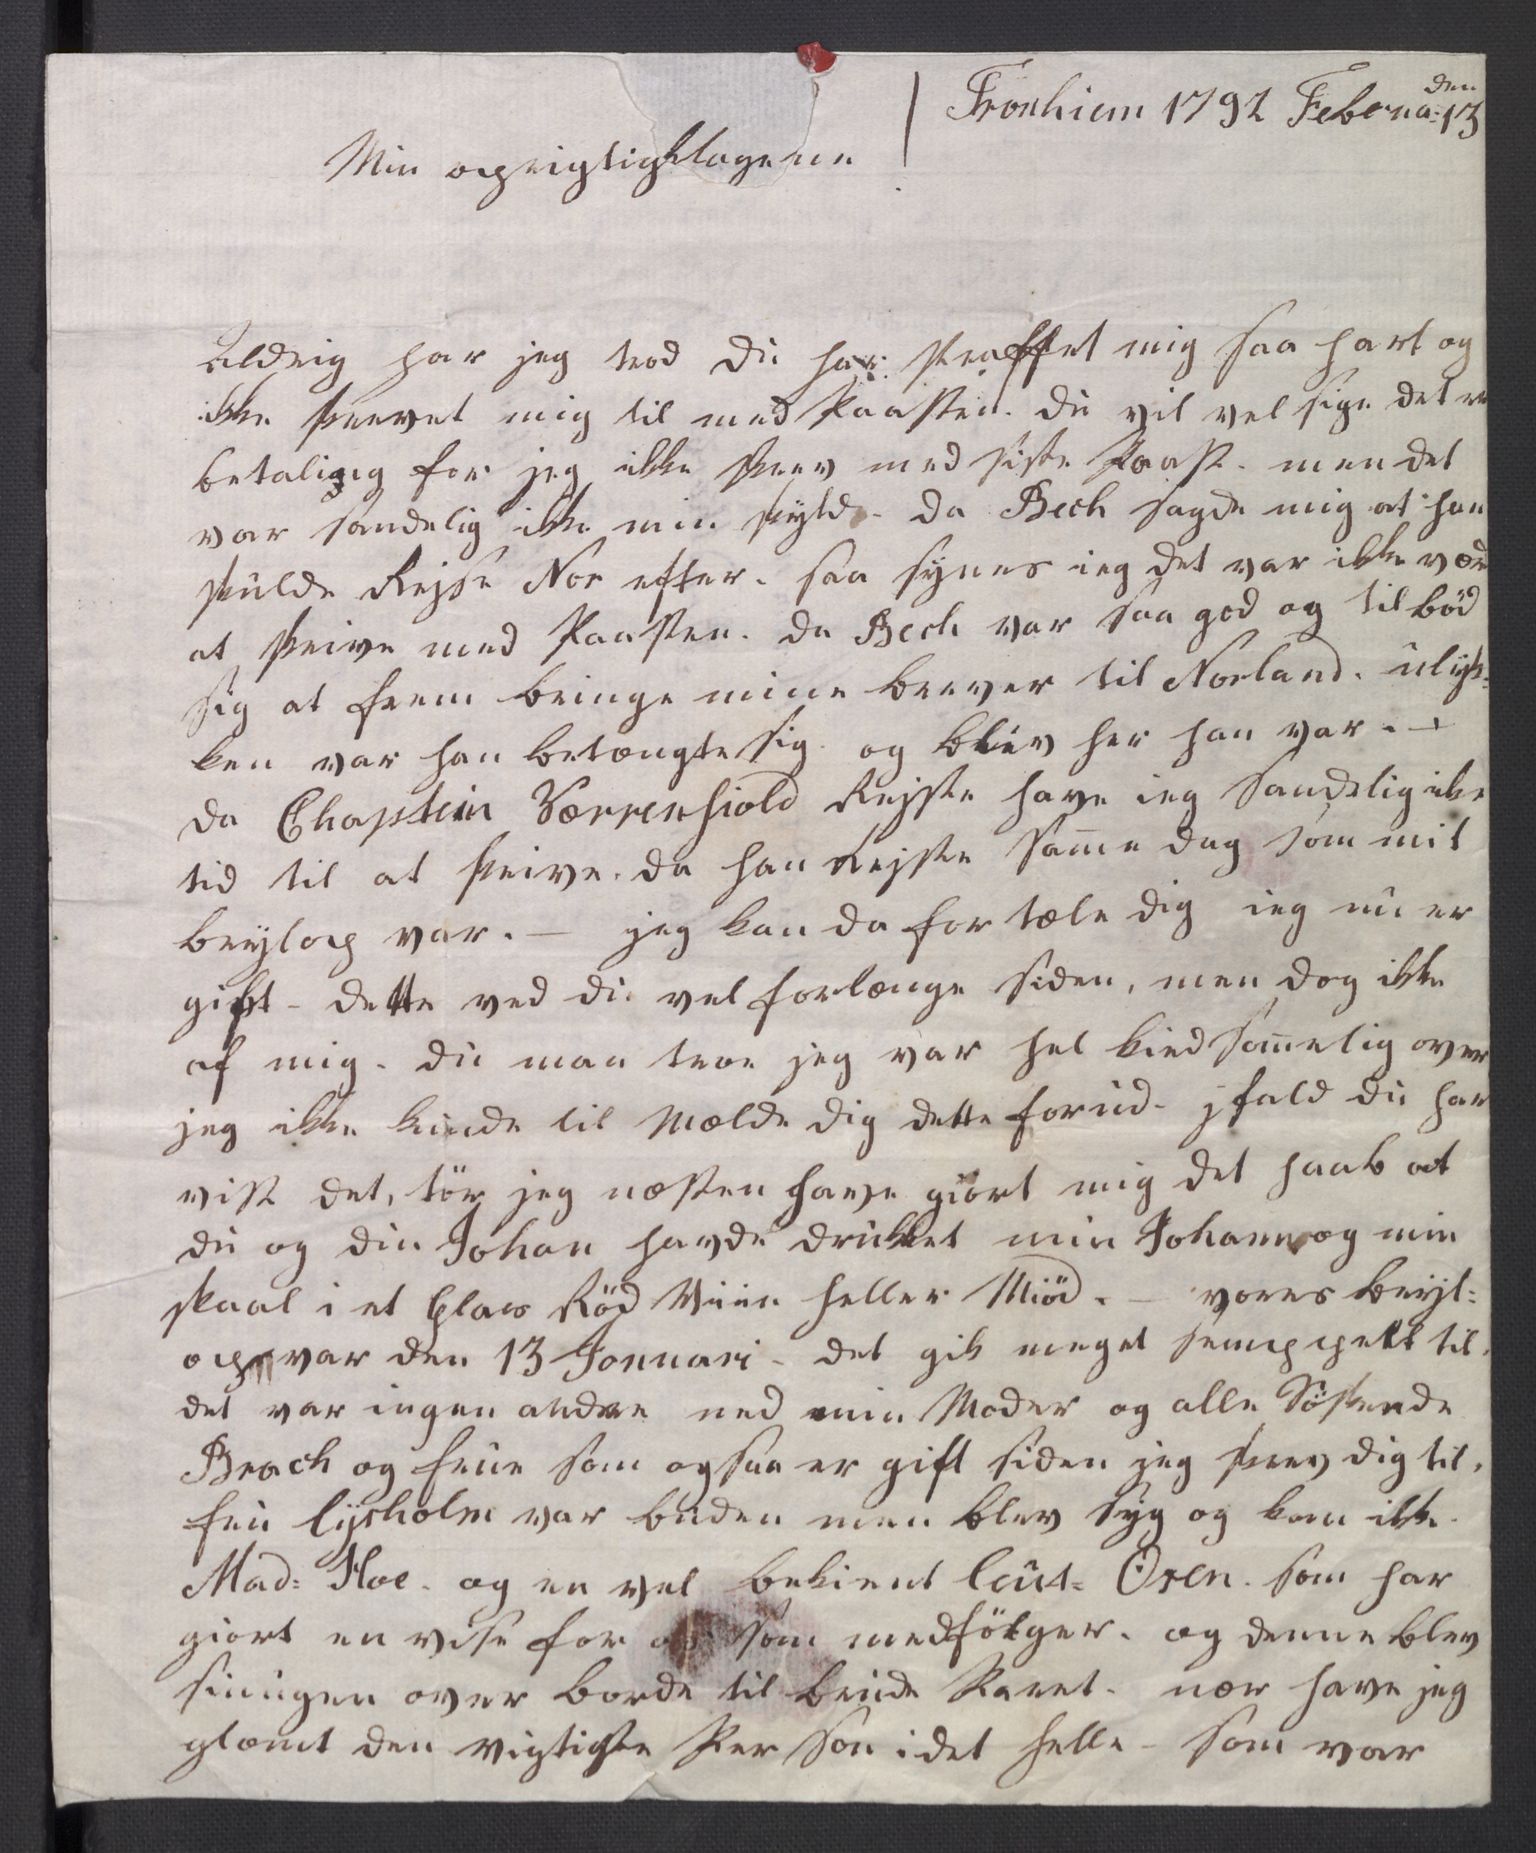 Tronhiem 1792 Februa: den 13
Min oprigtig Elagene
Aldrig har jeg trod du har straffet mig saa hart og
ikke skrevet mig til med Paasten. du vil vel sige det er
betaling for jeg ikke skrev med siste Paast. men det
var sandelig ikke min skyld. da Bech sagde mig at han
skulde Rejse Nor efter. saa synes ieg det var ikke værd
at skrive med Paasten. da Bech var saa god og tilbød
sig at frem bringe mine brever til Norland. ulyk-
ken var han betængte sig og blev her han var. -
da Chaptein Værrenhiold Rejste have ieg sandelig ikke
tid til at skrive. da han Rejste samme dag som mit
brylop var. - jeg kan da for tæle dig ieg nu er
gift - dette ved du vel forlænge siden, men dog ikke
af mig. du maa troe jeg var hel kiedsommelig over
jeg ikke kunde til Mælde dig dette forud. jfald du har
vist det, tør jeg næsten have giort mig det haab at
du og din Johan havde drukket min Johan og min
skaal i et Glas Rød Viin heller Miød. - vores bryl:
op var den 13 Jonuari - det gik meget simppelt til,
det var ingen andre ned min Moder og alle Søskende
Brach og frue som ogsaa er gift siden jeg skrev dig til,
fru lysholm var buden men blev syg og kom ikke.
Mad: Hoe. og en vel bekient leut= Oxen. som har
giort en vise for os som medfølger. og denne blev
siungen over borde til brude Paret. nær have jeg
glæmt den vigtigste Person i det helle - som var